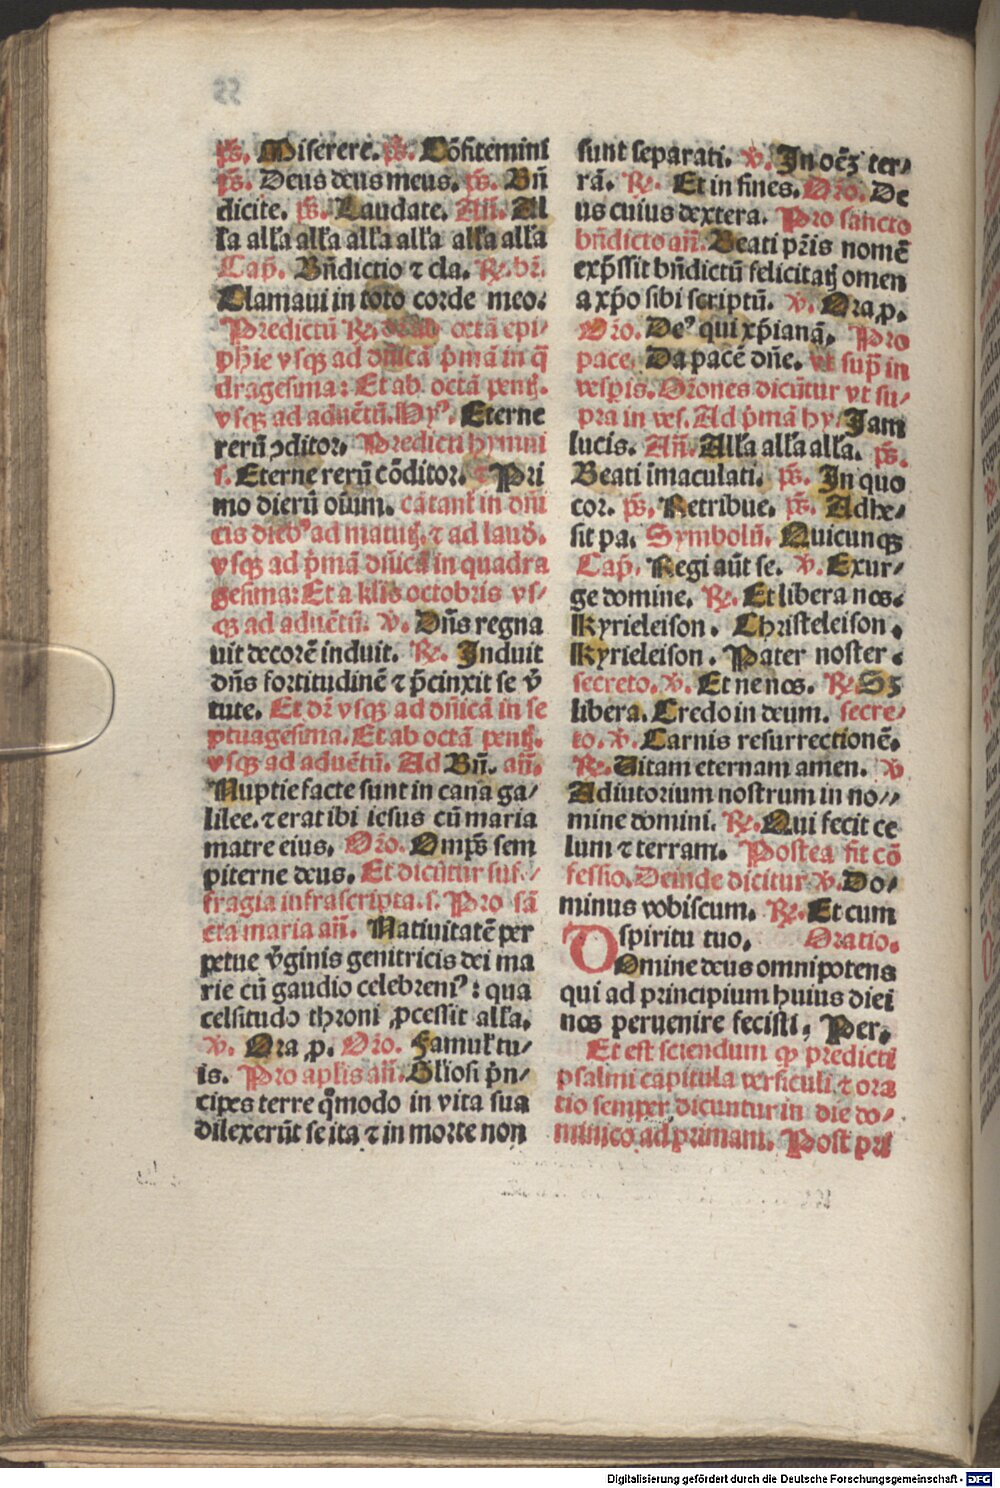 ps̄. Miserere. ps̄. Cōfitemini
ps̄. Deus deus meus. ps̄. Bn̄
dicite. ps̄. Laudate. An̄. Al
l'a all'a all'a all'a all'a all'a all'a
Cap̄. Bn̄dictio ⁊ cla. R̷. br̄.
Clamaui in toto corde meo.
Predictū R̷. dr̄ ab octā epi⸗
phīe vsqꝫ ad dn̄icā p̄mā in q̄
dragesima: Et ab octā pentꝭ.
vsqꝫ ad aduētū. Hyꝰ. Eterne
rerū ꝯditor. Predicti hymni
s. Eterne rerū cōditor. ⁊ Pri
mo dierū oīum. cātant̄ in dn̄i
cis diebꝰ ad matutꝭ. ⁊ ad laud̄.
vsqꝫ ad p̄mā dn̄icā in quadra
gesima: Et a kl̄is octobris vs⸗
qꝫ ad aduētū. v̄. Dn̄s regna
uit decorē induit. R̷. Induit
dn̄s fortitudinē ⁊ p̄cinxit se v̄
tute. Et dr̄ vsqꝫ ad dn̄icā in se
ptuagesima. Et ab octā pentꝭ.
vsqꝫ ad aduētū. Ad Bn̄. an̄.
Nuptie facte sunt in cana ga⸗
lilee. ⁊ erat ibi iesus cū maria
matre eius. Or̄o. Omp̄s sem
piterne deus. Et dicūtur suf⸗
fragia infrascripta. s. Pro sā
cta maria an̄. Natiuitatē per
petue v̄ginis genitricis dei ma
rie cū gaudio celebremꝰ: qua
celsitudo throni ꝓcessit all'a.
v̄. Ora p̱. Or̄o. Famul' tu⸗
is. Pro aplis an̄. Gl̄iosi p̄n⸗
cipes terre q̄modo in vita sua
dilexerūt se ita ⁊ in morte non
sunt separati. v̄. In oēꝫ ter⸗
rā. R̷. Et in fines. Or̄o. De
us cuius dextera. Pro sancto
bn̄dicto an̄. Beati pr̄is nomē
exp̄ssit bn̄dictū felicitatꝭ omen
a xp̄o sibi scriptū. v̄. Ora p̱.
Or̄o. Deꝰ qui xp̄ianā. Pro
pace. Da pacē dn̄e. vt sup̄ in
vesp̱is. Or̄ones dicūtur vt su⸗
pra in ves. Ad p̄mā hy. Iam
lucis. An̄. All'a all'a all'a. ps̄.
Beati īmaculati. ps̄. In quo
cor. ps̄. Retribue. ps̄. Adhe⸗
sit pa. Symbolū. Quicunqꝫ
Cap̄. Regi aūt se. v̄. Exur⸗
ge domine. R̷. Et libera nos.
Kyrieleison. Christeleison.
Kyrieleison. Pater noster.
secreto. v̄. Et ne nos. R̷. Sꝫ
libera. Credo in deum. secre⸗
to. v̄. Carnis resurrectionē.
R̷. Uitam eternam amen. v̄
Adiutorium nostrum in no⸗
mine domini. R̷. Qui fecit ce
lum ⁊ terram. Postea fit cō
fessio. Deinde dicitur v̄. Do⸗
minus vobiscum. R̷. Et cum
spiritu tuo. Oratio.
DOmine deus omnipotens
qui ad principium huius diei
nos peruenire fecisti, Per.
Et est sciendum qꝫ predicti
psalmi capitula versiculi ⁊ ora
tio semper dicuntur in die do⸗
minico ad primam. Post pri
Digitalisierung gefördert durch die Deutsche Forschungsgemeinschaft - DFG